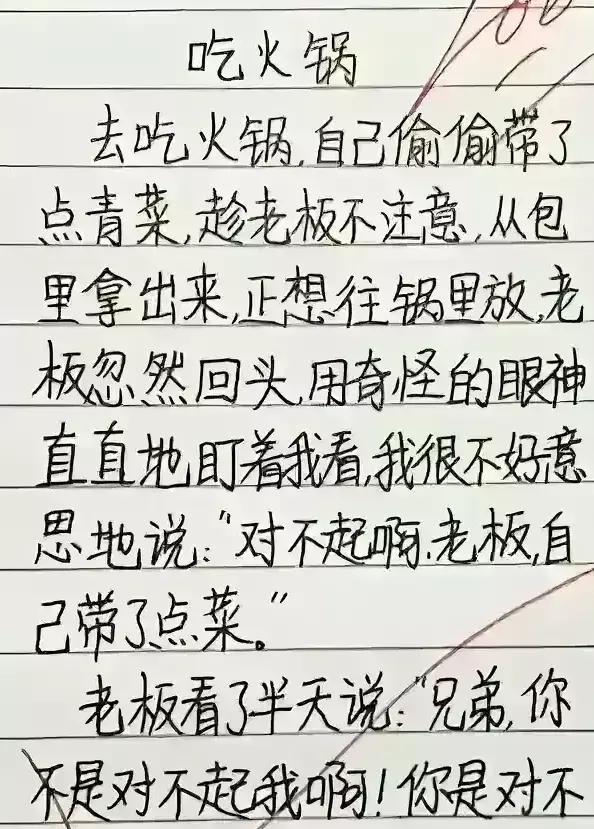 吃火锅
去吃火锅,自己偷偷带了
点青菜,趁老板不注意,从包
里拿出来,正想往锅里放,老
板忽然回头,用奇怪的眼神
直直地盯着我看,我很不好意
思地说:"对不起啊,老板,自
己带了点菜。"
老板看了半天说:"兄弟,你
不是对不起我啊!你是对不